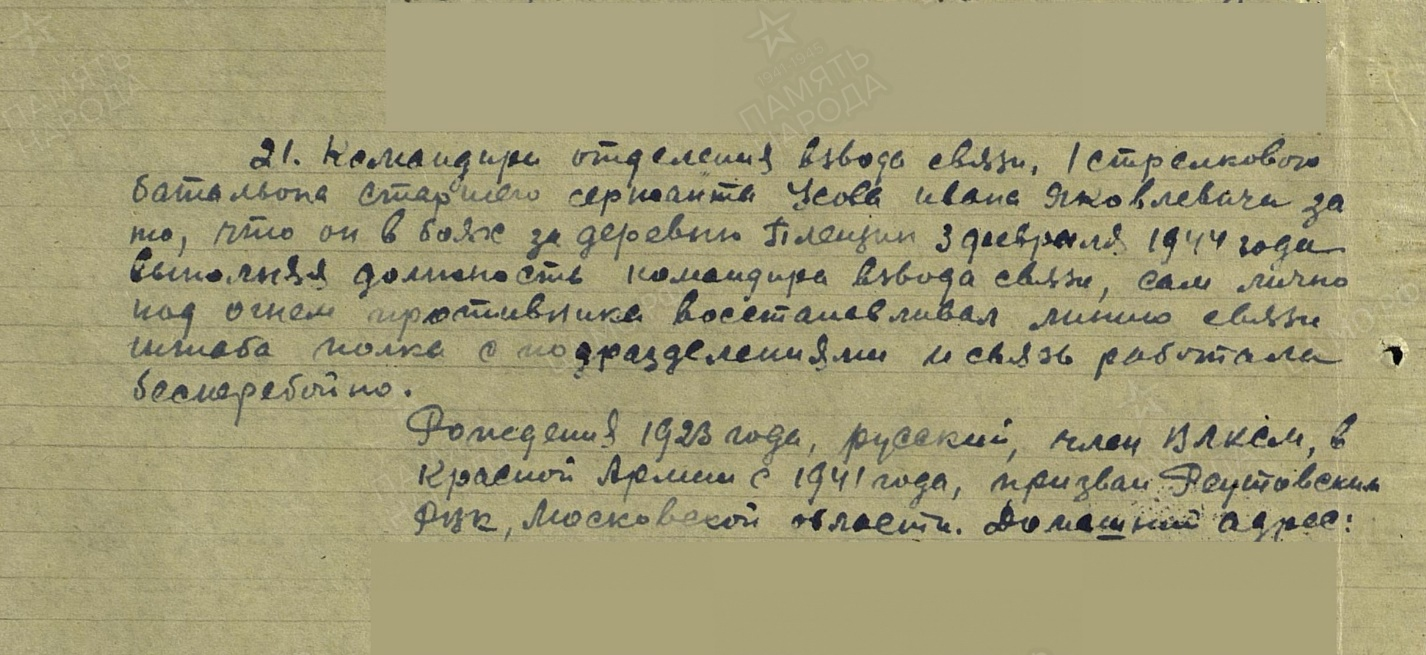 21. Командира отделения взвода связи, 1 стрелкового
батальона старшего сержанта Усова Ивана Яковлевича за
то, что он в боях за деревню Плещин 3 февраля 1944 года
выполняя должность командира взвода связи, сам лично
под огнем противника восстанавливал линию связи
штаба полка с подразделениями и связь работала
бесперебойно.
Рождения 1923 года, русский, член ВЛКСМ, в
Красной Армии с 1941 года, призван Реутовским
РВК, Московской области. Домашний адрес: